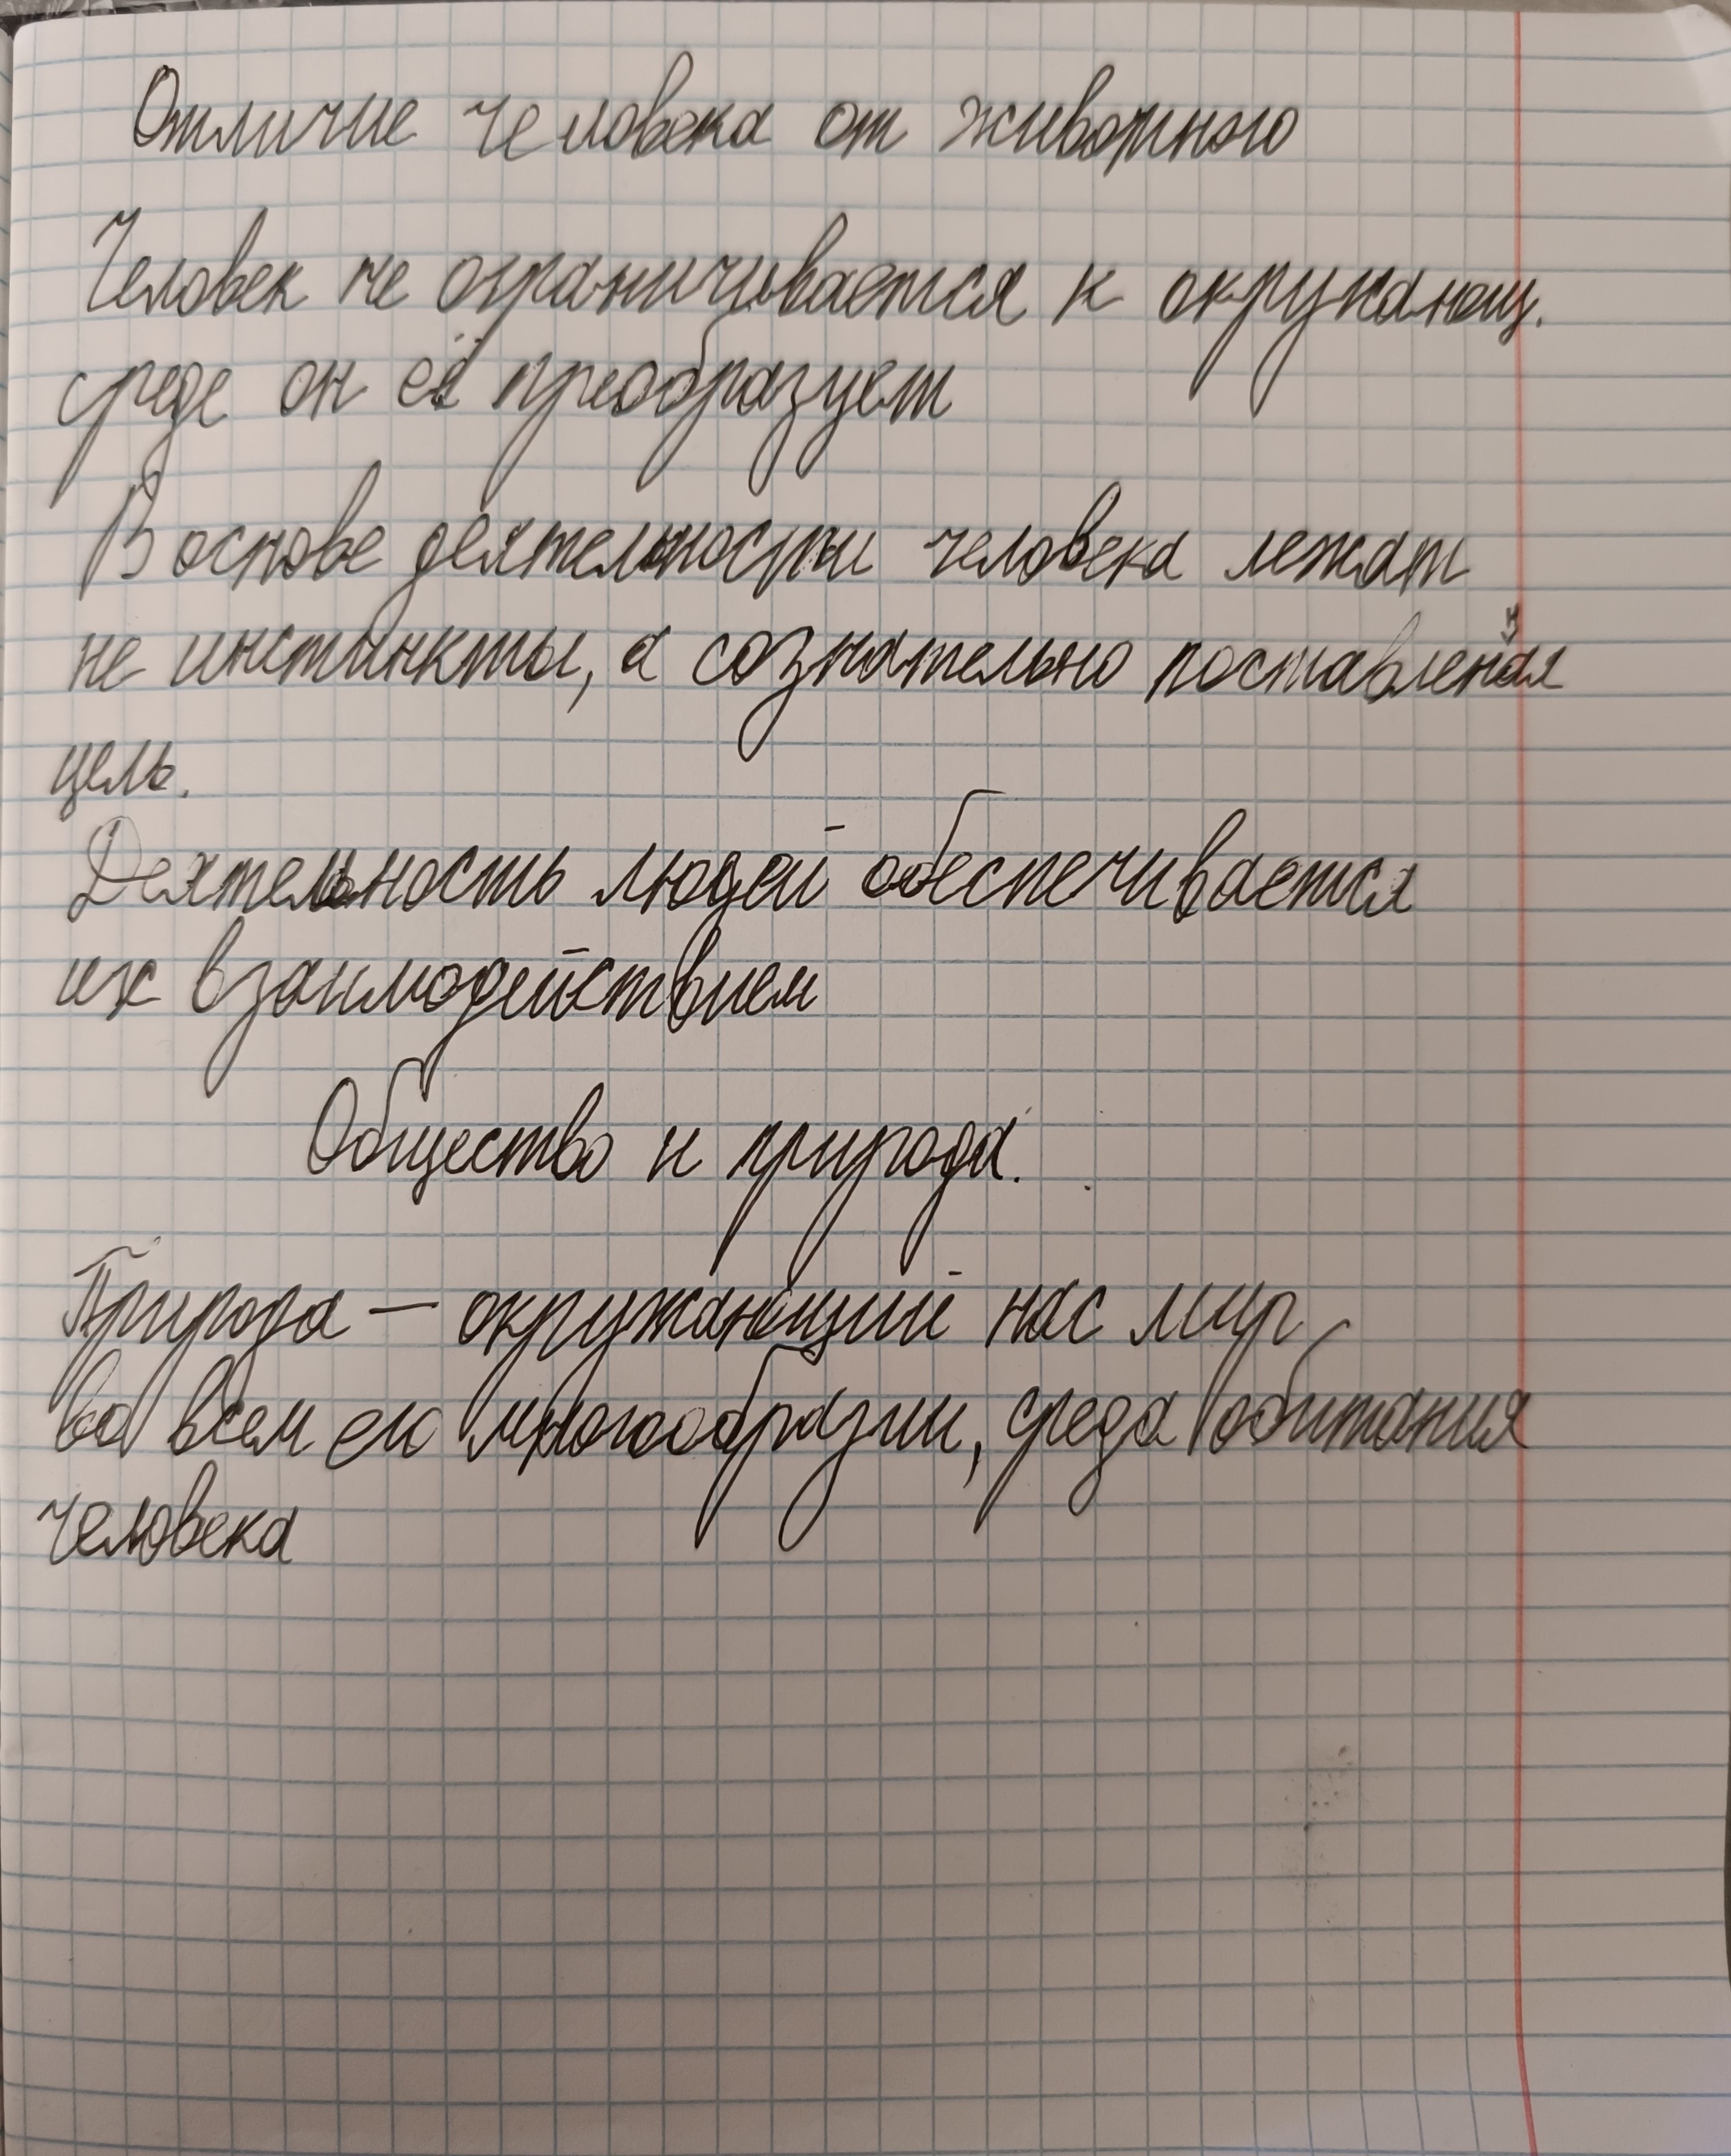 Отличие человека от животного
Человек не ограничивается к окружающ.
среде он её преобразует
В основе деятельности человека лежат
не инстинкты, а сознательно поставленая
цель.
Деятельность людей обеспечивается
их взаимодействием
Общество и природа.
Природа — окружающий нас мир
во всем его многообразии, среда обитания
человека